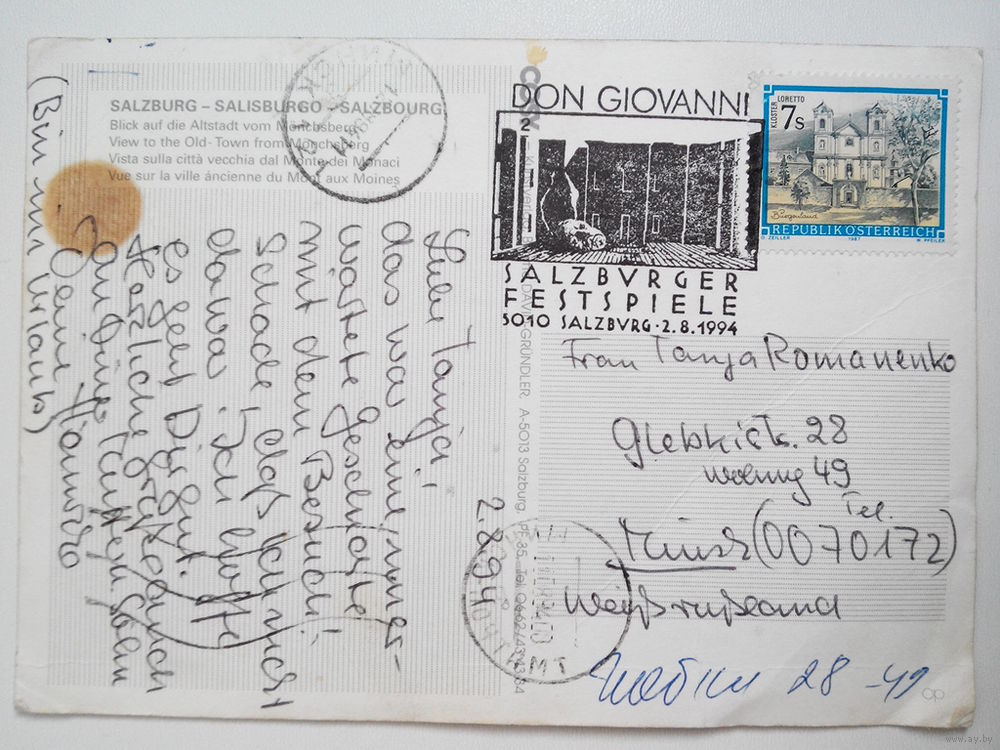 SALZBURG – SALISBURGO – SALZBOURG
Blick auf die Altstadt vom Mönchsberg
View to the Old-Town from Mönchsberg
Vista sulla città vecchia dal Monte dei Monaci
Vue sur la ville áncienne du Mont aux Moines
Liebe Tanja!
das war eine uner-
wartete Geschichte
mit dem Besuch!
Schade, daß ich nicht
da war. Ich hoffe
es geht Dir gut.
Herzliche Grüße auch
an Deine
Deine
(Bin im Urlaub)
2.8.94
DON GIOVANNI
2
SALZBVRGER
FESTSPIELE
5010 SALZBVRG · 2.8.1994
KLOSTER LORETTO
7s
Burgenland
REPUBLIK ÖSTERREICH
O. ZEILLER 1987 W. PFEILER
DAVID GRÜNDLER, A-5013 Salzburg, PF 35, Tel. 0662/
Frau Tanja Romanenko
Glebkistr. 28
Wohnung 49
Tel.
Minsk (0070172)
Weißrußland
Глебки 28 - 49
www.ay.by